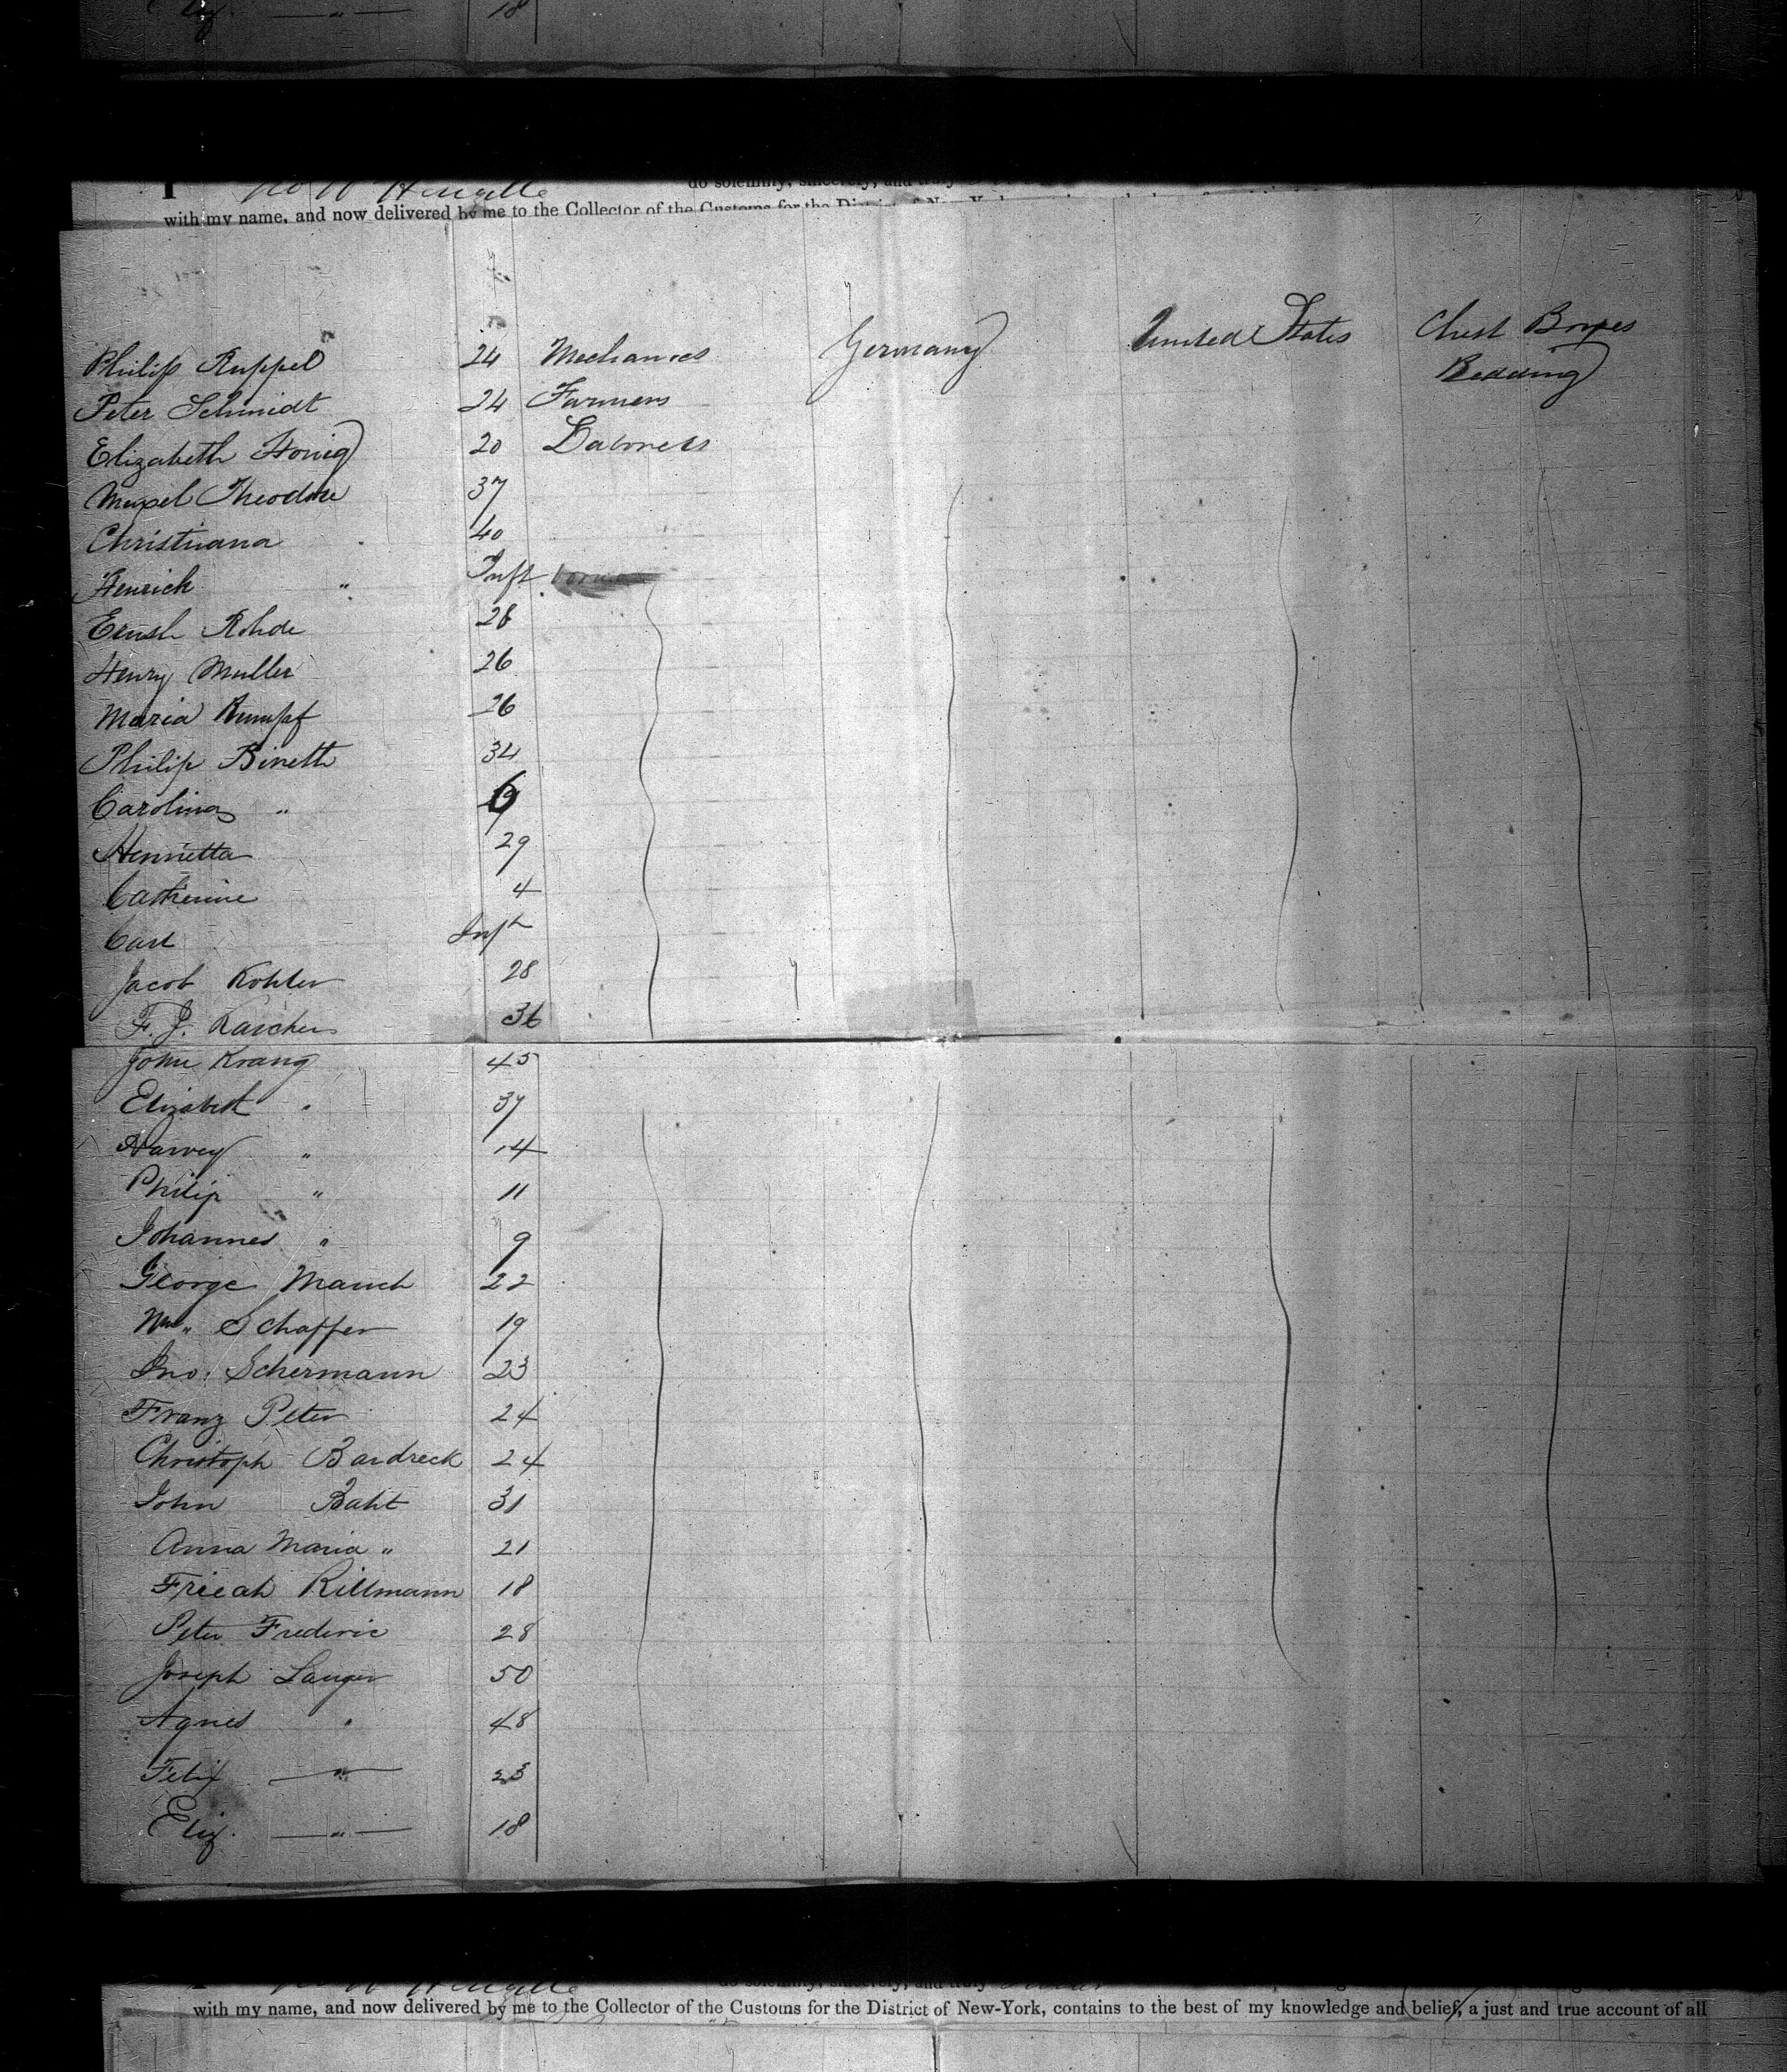 Eliz. — " — 18
do solemnly, sincerely, and truly
with my name, and now delivered by me to the Collector of the Customs for the District of New-York
Philip Ruppel 24 Mechanics Germany United States Chest Boxes
Peter Schmidt 24 Farmers Bedding
Elizabeth Honig 20 Laborers
Theodore 37
Christiana 40
Henrich " Inft
Ernst Rohde 28
Henry Muller 26
Maria Rumpf 26
Philip Bineth 34
Carolina " 6
Henrietta 29
Catherine 4
Carl Inft
Jacob Kohler 28
F. J. Karcher 36
John Krang 45
Elizabeth " 37
Harvey " 14
Philip " 11
Johannes " 9
George Mauch 22
Wm " Schaffer 19
Jno. Schermann 23
Franz Peter 24
Christoph Bardreck 24
John Baht 31
Anna Maria " 21
Friedh Rillmann 18
Peter Frederic 28
Joseph Langer 50
Agnes " 48
Felix — " — 23
Eliz. — " — 18
do solemnly, sincerely, and truly
with my name, and now delivered by me to the Collector of the Customs for the District of New-York, contains to the best of my knowledge and belief, a just and true account of all